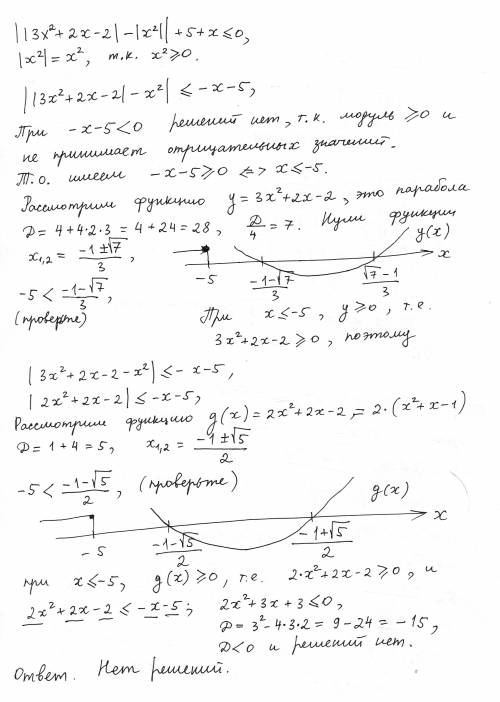 ||3x²+2x-2|-|x²||+5+x≤0,
|x²|=x², т.к. x²≥0.
||3x²+2x-2|-x²|≤-x-5,
При -x-5<0 решений нет, т.к. модуль ≥0 и
не принимает отрицательных значений.
Т.о. имеем -x-5≥0 <=> x≤-5.
Рассмотрим функцию y=3x²+2x-2, это парабола
D=4+4·2·3=4+24=28, D/4=7. Нули функции
x₁,₂=(-1±√7)/3
y(x)
x
-5
(-1-√7)/3
(√7-1)/3
-5<(-1-√7)/3,
(проверьте)
При x≤-5, y≥0, т.е.
3x²+2x-2≥0, поэтому
|3x²+2x-2-x²|≤-x-5,
|2x²+2x-2|≤-x-5,
Рассмотрим функцию g(x)=2x²+2x-2,=2·(x²+x-1)
D=1+4=5, x₁,₂=(-1±√5)/2
-5<(-1-√5)/2, (проверьте)
g(x)
x
-5
(-1-√5)/2
(-1+√5)/2
при x≤-5, g(x)≥0, т.е. 2·x²+2x-2≥0, и
2x²+2x-2≤-x-5; 2x²+3x+3≤0,
D=3²-4·3·2=9-24=-15,
D<0 и решений нет.
Ответ. Нет решений.